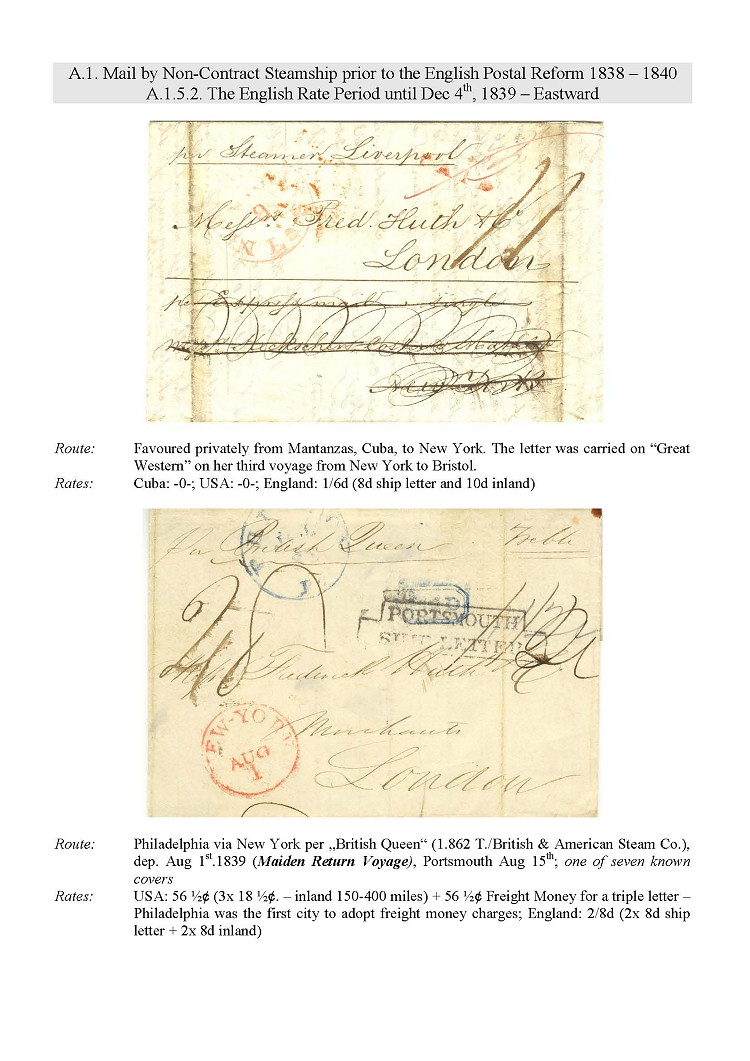 A.1. Mail by Non-Contract Steamship prior to the English Postal Reform 1838 – 1840
A.1.5.2. The English Rate Period until Dec 4th, 1839 – Eastward
per Steamer Liverpool
Messrs Fred. Huth & Co
London
New York
Route: Favoured privately from Mantanzas, Cuba, to New York. The letter was carried on “Great
Western” on her third voyage from New York to Bristol.
Rates: Cuba: -0-; USA: -0-; England: 1/6d (8d ship letter and 10d inland)
British Queen
Treble
PORTSMOUTH
SHIP LETTER
Frederick Huth
EW-YORK
AUG
1
Merchants
London
Route: Philadelphia via New York per „British Queen“ (1.862 T./British & American Steam Co.),
dep. Aug 1st.1839 (Maiden Return Voyage), Portsmouth Aug 15th; one of seven known
covers
Rates: USA: 56 ½¢ (3x 18 ½¢. – inland 150-400 miles) + 56 ½¢ Freight Money for a triple letter –
Philadelphia was the first city to adopt freight money charges; England: 2/8d (2x 8d ship
letter + 2x 8d inland)